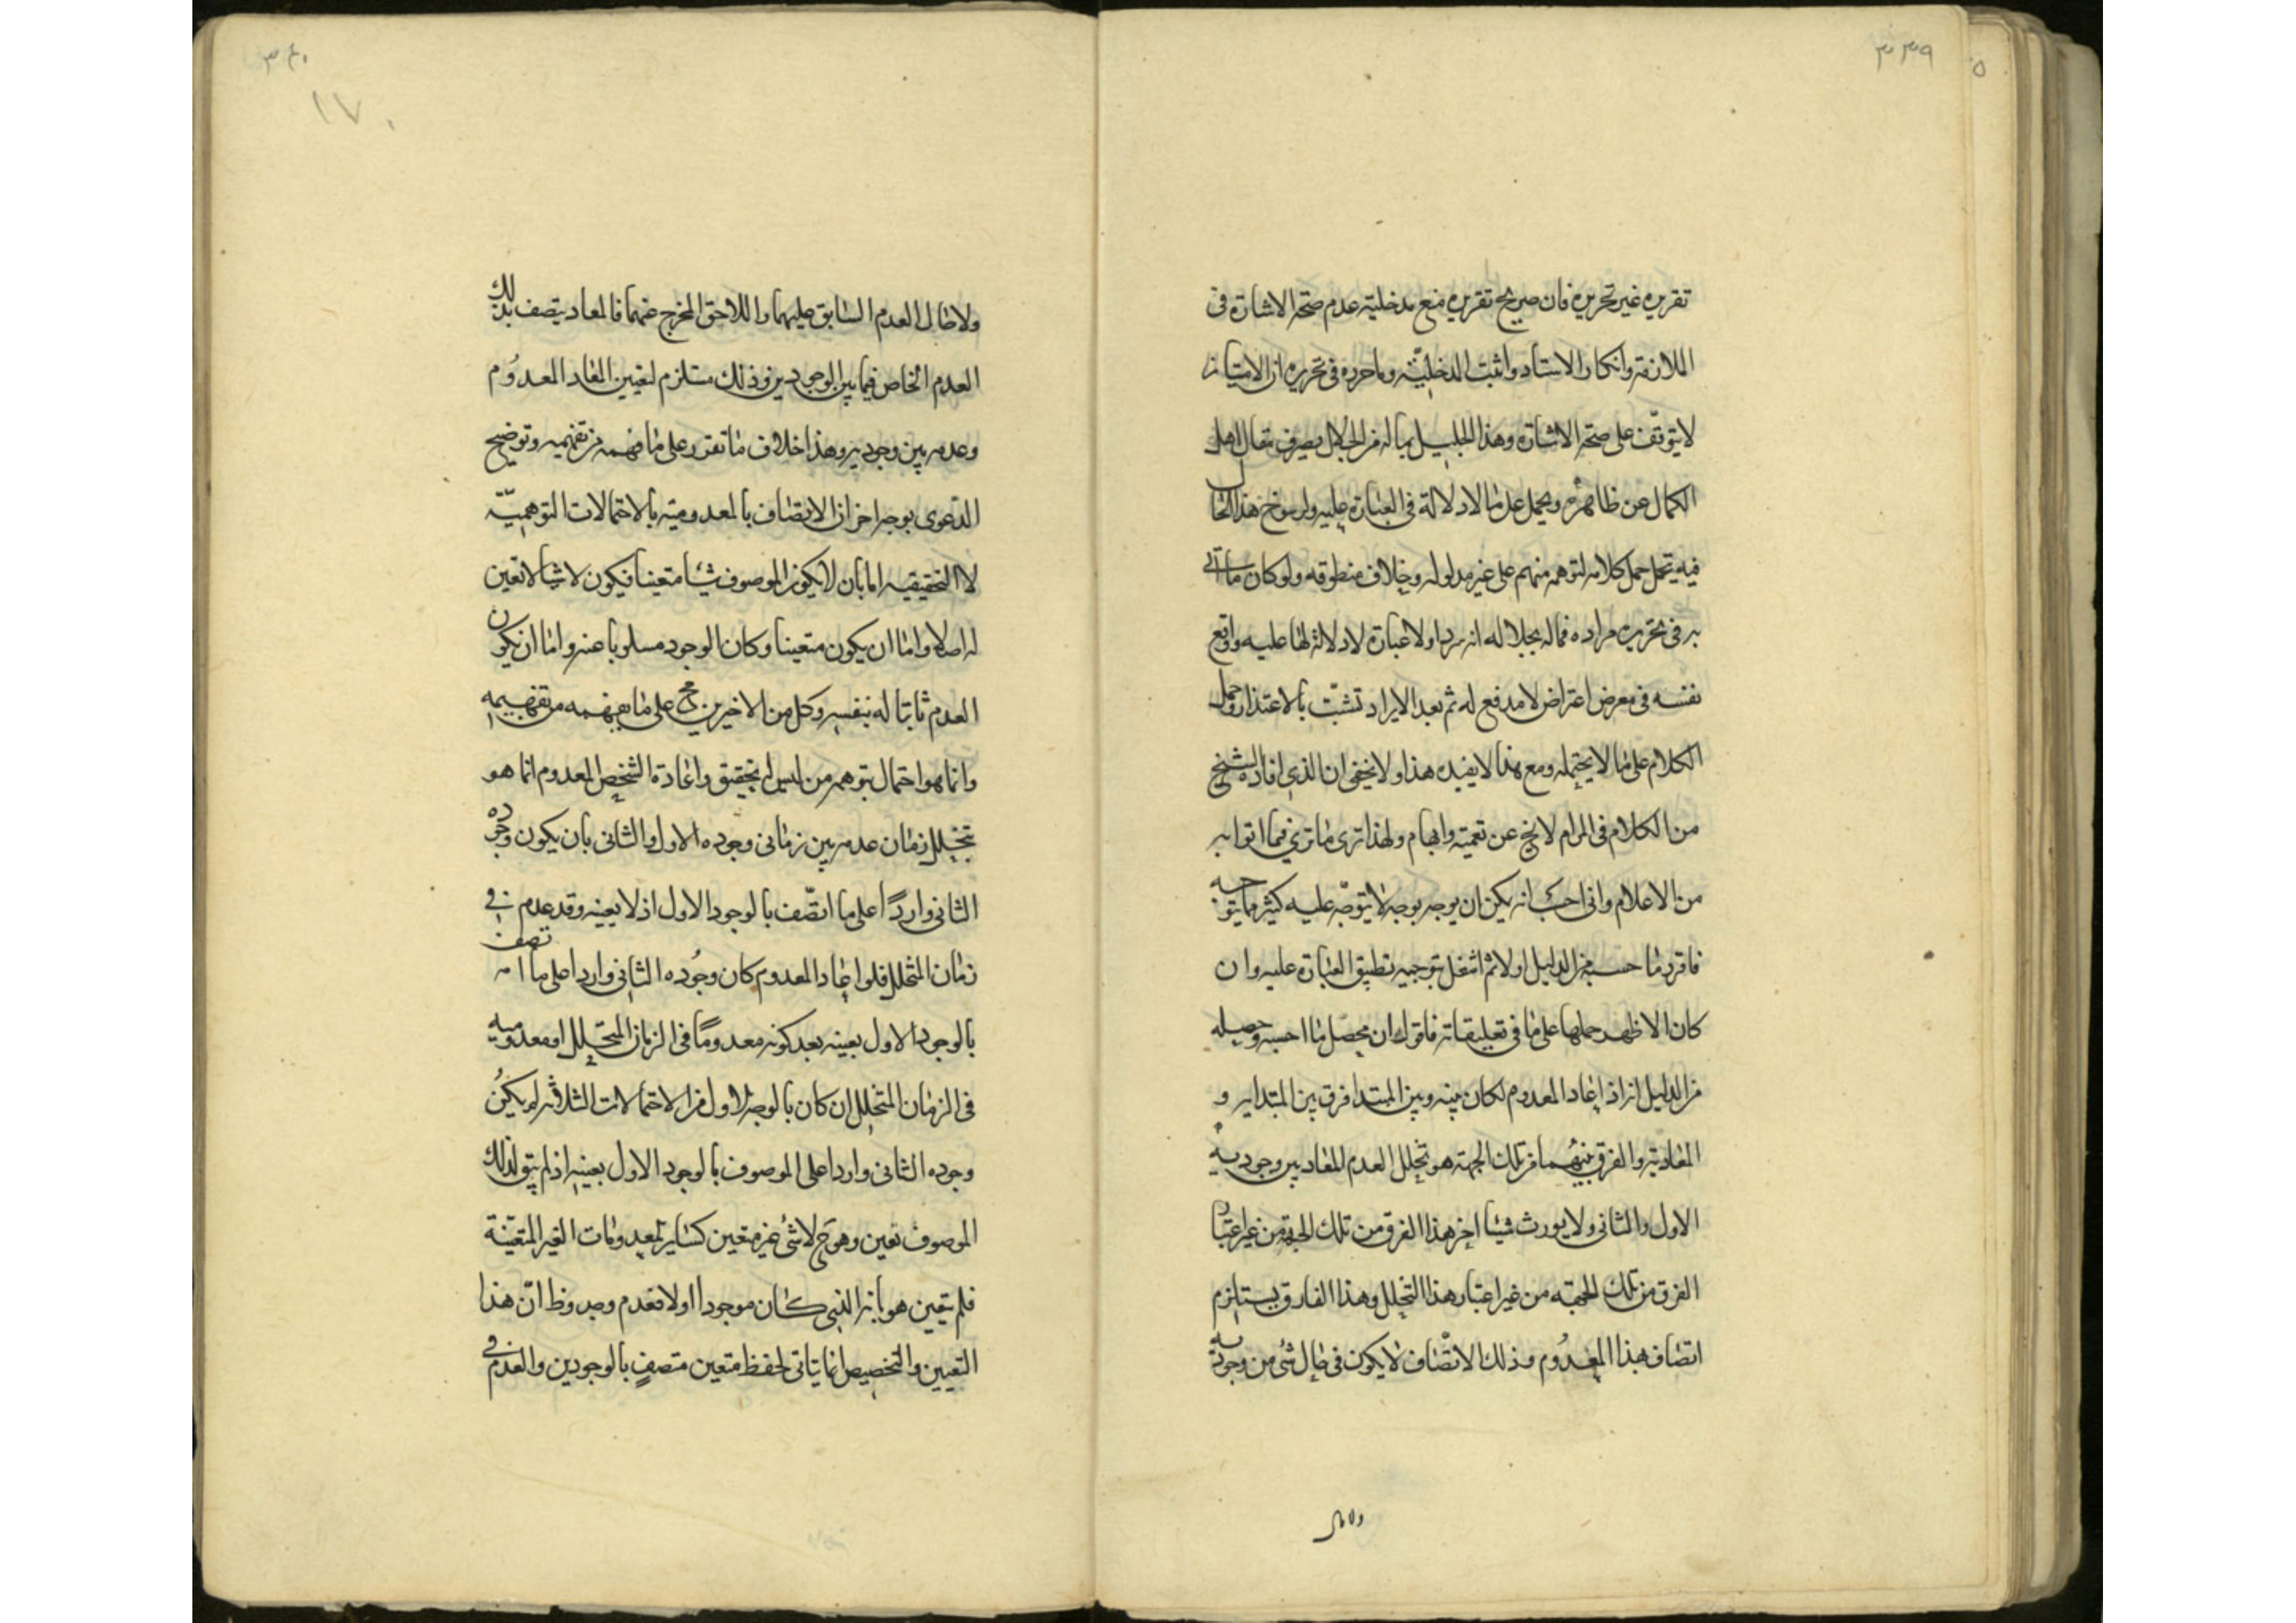 ٣٣٩
تقريره غير تحريره فان صريح تقريره منع مدخلية عدم صحة الاشارة فى
الملازمة وانكار الاستناد واثبت المدخلية وما حرره فى تحريره ان الامتياز
لا يتوقف على صحة الاشارة وهذا الجليل بماله من الجلال يصرف مقال اهل
الكمال عن ظاهره ويحمل على ما لا دلالة فى العبارة عليه ولرسوخ هذا الحال
فيه يتحمل حمل كلامه لتوهمه منهم على غير مدلوله وخلاف منطوقه ولو كان ما اتى
به فى تحريره مراده فماله بجلاله انه يرد اولا عبارة لا دلالة لها عليه واوقع
نفسه فى معرض اعتراض لا مدفع له ثم بعد الايراد تشبث بالاعتذار وحمل
الكلام على ما لا يحتمله ومع هذا لا يفيده هذا ولا يخفى ان الذى افاده الشيخ
من الكلام فى المرام لا يخ عن تعمية وابهام ولهذا ترى ما ترى فيما اتوا به
من الاعلام وانى احسب انه يمكن ان يوجه بوجه لا يتوجه عليه كثير مما يتوجه
فاقرر ما حسبه من الدليل اولا ثم اشغل بتوجيه تطبيق العبارة عليه وان
كان الاظهر حملها على ما فى تعليقاته فاقول ان محصل ما احسبه وحصيله
من الدليل انه اذا اعاد المعدوم لكان بينه وبين المبتدا فرق بين المبتدايه و
المعادية والفرق بينهما من تلك الجهة هو تخلل العدم للمعاد بين وجوديه
الاول والثانى ولا يورث شيئا اخر هذا الفرق من تلك الجهة من غير اعتبار
الفرق من تلك الجهة من غير اعتبار هذا التخلل وهذا الفارق يستلزم
اتصاف هذا المعدوم وذلك الاتصاف لا يكون فى حال شئ من وجوديه
ولا حال
٣٤٠
١٧٠
ولا حال العدم السابق عليهما واللاحق المخرج عنهما فالمعاد يتصف بذلك
العدم الخاص فيما بين الوجودين وذلك مستلزم لتعيين المعاد المعدوم
وعدمه بين وجوديه وهذا خلاف ما تقرر على ما فهمه من تفهيمه وتوضيح
الدعوى بوجه اخر ان الاتصاف بالمعدومية بالاحتمالات التوهمية
لا التحقيقية اما بان لا يكون الموصوف شيئا متعينا فيكون لا شيئا لا تعين
له اصلا واما ان يكون متعينا وكان الوجود مسلوبا عنه واما ان يكون
العدم ثابتا له بنفسه وكل من الاخرين مح على ما يفهمه من تفهيمه
وانما هو احتمال بتوهم من ليس له تحقيق واعادة الشخص المعدوم انما هو
بتخلل زمان عدمه بين زمانى وجوده الاول والثانى بان يكون وجوده
الثانى واردا على ما اتصف بالوجود الاول اذ لا بعينه وقد عدم فى
زمان المتخلل فلو اعاد المعدوم كان وجوده الثانى واردا على ما اتصف
بالوجود الاول بعينه بعد كونه معدوما فى الزمان المتخلل او معدوميه
فى الزمان المتخلل ان كان بالوجه الاول من الاحتمالات الثلاثه لم يكن
وجوده الثانى واردا على الموصوف بالوجود الاول بعينه اذ لم يبق لذلك
الموصوف تعين وهو ح لا شئ غير متعين كساير المعدومات الغير المتعينة
فلم يتعين هو بانه الذى كان موجودا اولا فعدم وجد وظ ان هذا
التعيين والتخصيص انما يتاتى لحفظ متعين متصف بالوجودين والعدم فى